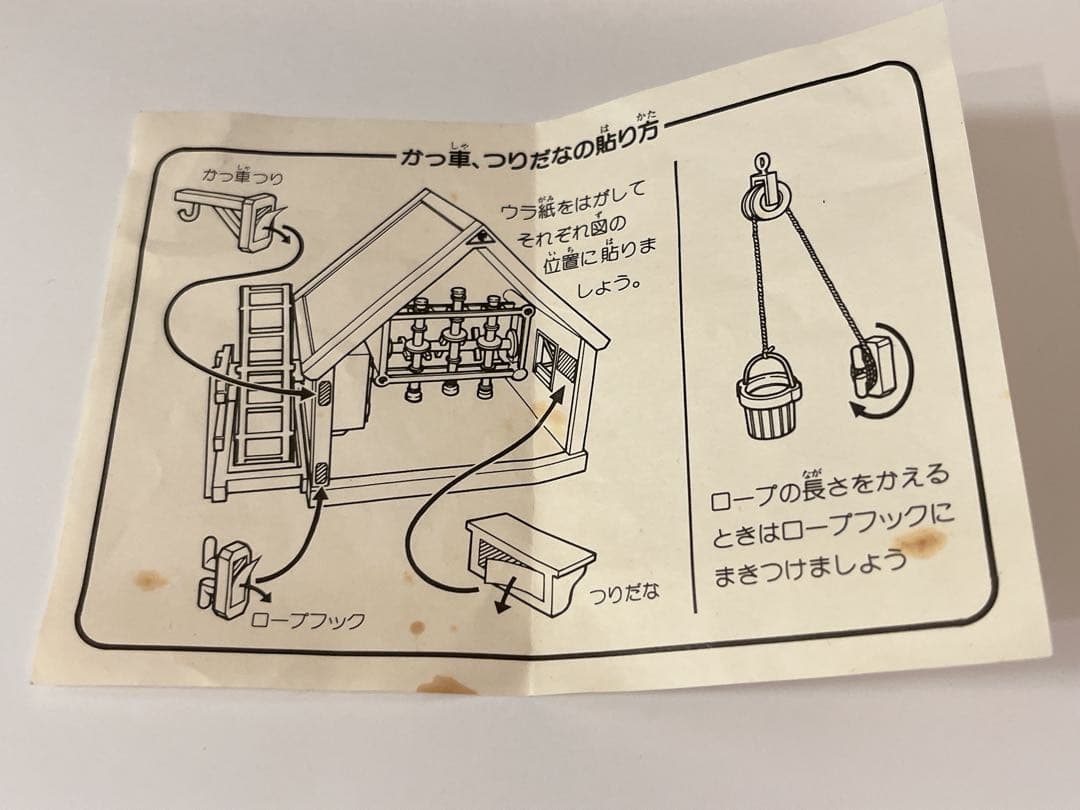 かっ車、つりだなの貼り方
かっ車つり
ウラ紙をはがして
それぞれ図の
位置に貼りま
しょう。
ロープフック
つりだな
ロープの長さをかえる
ときはロープフックに
まきつけましょう